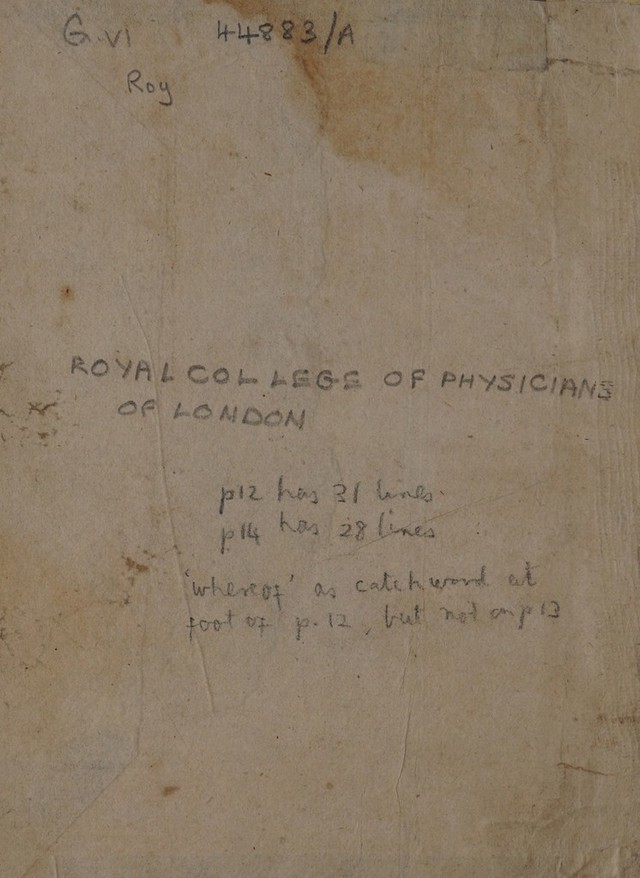 G.VI 44883/A
Roy
ROYAL COLLEGE OF PHYSICIANS
OF LONDON
p12 has 31 lines.
p14 has 28 lines
'whereof' as catchword at
foot of p.12, but not on p13